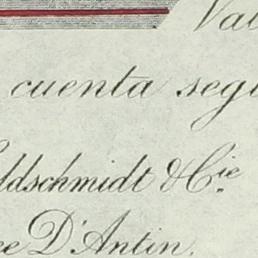 Val
cuenta segú
ldschmidt & Cie
ee D'Antin.